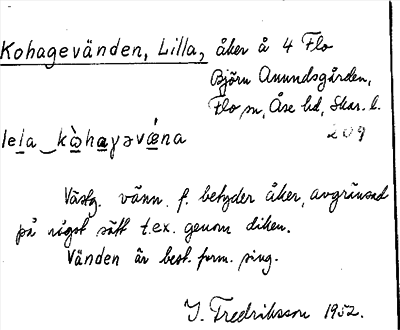 Kohagevänden, Lilla, åker å 4 Flo
Björn Anundsgården,
Flo sn, Åse hd, Skar. l.
209
lela‿kò̱ha̱ɣəvǽ̱na
Västg. vänn. f. betyder åker, avgränsad
på något sätt t.ex. genom diken.
Vänden är best. form. sing.
I. Fredriksson 1952.